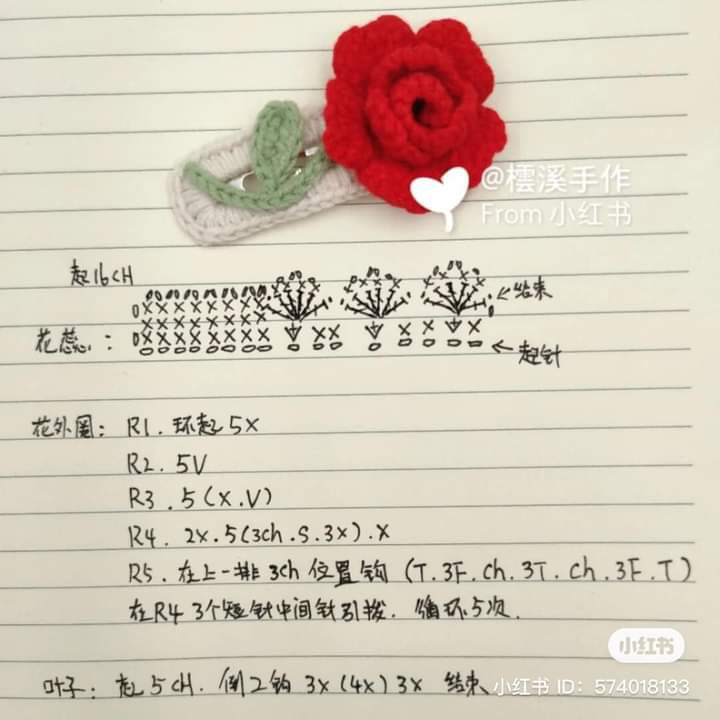 @橒溪手作
From 小红书
起16CH
←结束
花蕊：
←起针
花外圈：R1.环起5X
R2.5V
R3.5(X.V)
R4.2X.5(3ch.S.3X).X
R5.在上一排3ch位置钩(T.3F.ch.3T.ch.3F.T)
在R4 3个短针中间针引拨.循环5次.
小红书
叶子：起5CH.倒2钩3X(4X)3X 结束
小红书 ID：574018133